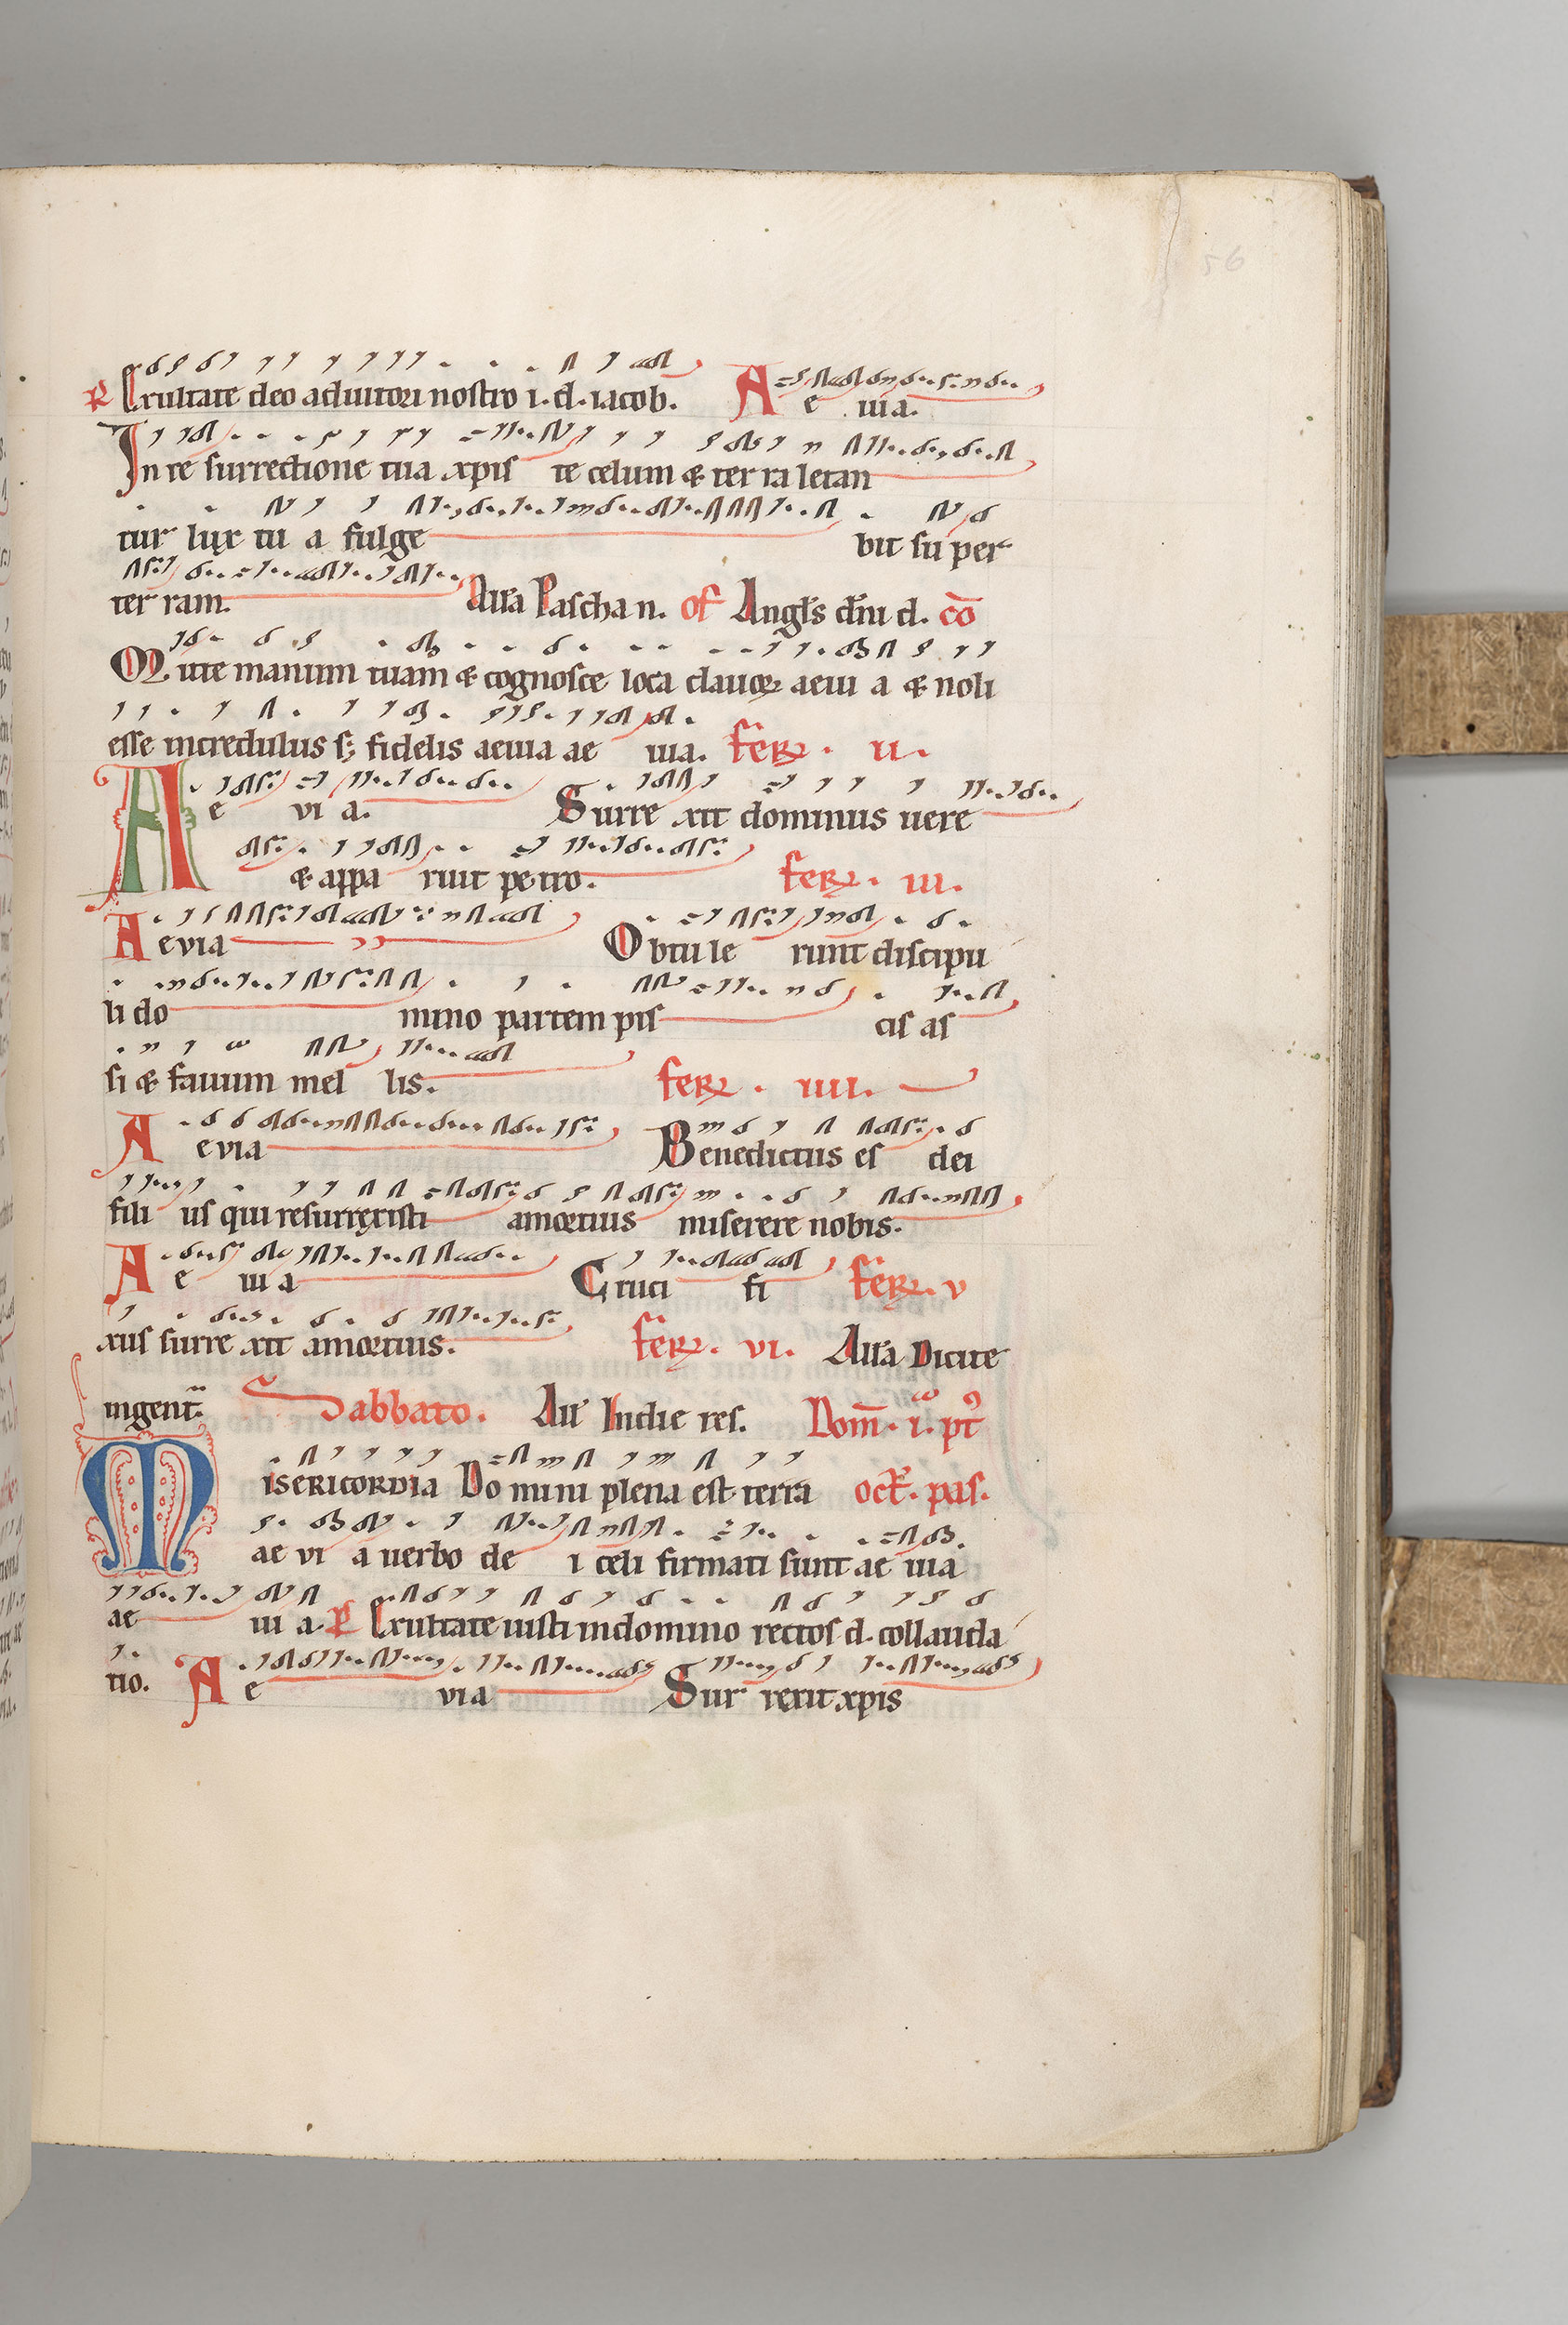 56
P Exultate deo adiutori nostro i. d. iacob. A e uia.
In re surrectione tua xpis te celum & ter ra letan
tur lux tu a fulge bit su per
ter ram. All'a Pascha n. of Angl's dn̄i d. cō
Mitte manum tuam & cognosce loca clauoꝝ aeui a & noli
esse incredulus sꝫ fidelis aeuia ae uia. ferꝝ. II.
A e vi a. Surre xit dominus uere
& appa ruit pe tro. ferꝝ. III.
A e via Obtu le runt discipu
li do mino partem pis cis as
si & fauum mel lis. ferꝝ. IIII.
A evia Benedictus es dei
fili us qui resurrexisti amortuis miserere nobis.
A e ui a Cruci fi ferꝝ. v
xus surre xit amortuis. ferꝝ. VI. All'a Dicite
ingent. Sabbato. All' Indie res. Dom̄. i. pt
Misericordia Do mini plena est terra oct. pas.
ae vi a uerbo de i celi firmati sunt ae uia
ae ui a. P Exultate iusti indomino rectos d. collauda
tio. A e via Sur rexit xpis